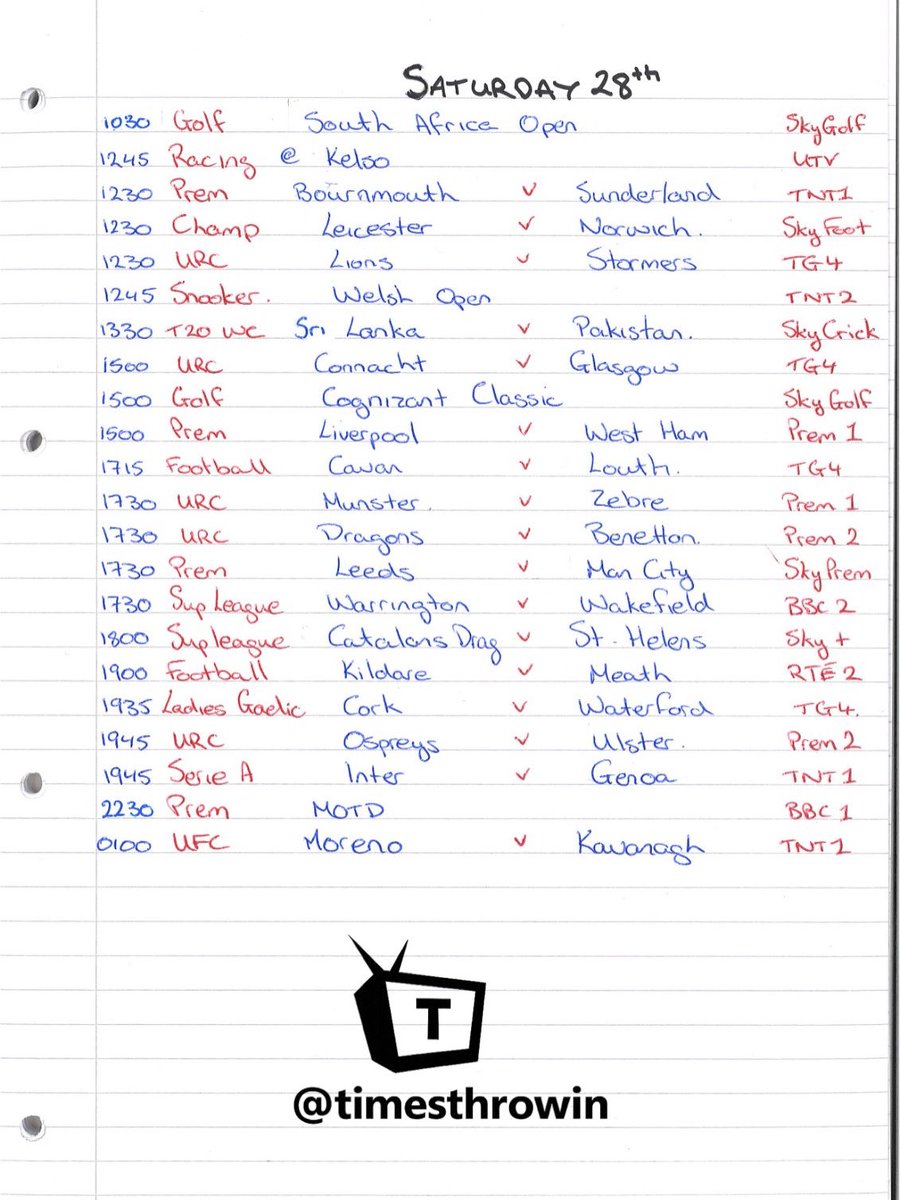 SATURDAY 28th
1030 Golf South Africa Open SkyGolf
1245 Racing @ Kelso UTV
1230 Prem Bournmouth v Sunderland TNT1
1230 Champ Leicester v Norwich. SkyFoot
1230 URC Lions v Stormers TG4
1245 Snooker. Welsh Open TNT2
1330 T20 WC Sri Lanka v Pakistan. SkyCrick
1500 URC Connacht v Glasgow TG4
1500 Golf Cognizant Classic SkyGolf
1500 Prem Liverpool v West Ham Prem 1
1715 Football Cavan v Louth. TG4
1730 URC Munster. v Zebre Prem 1
1730 URC Dragons v Benetton. Prem 2
1730 Prem Leeds v Man City SkyPrem
1730 Sup League Warrington v Wakefield BBC 2
1800 Sup league Catalans Drag v St. Helens Sky +
1900 Football Kildare v Meath RTÉ 2
1935 Ladies Gaelic Cork v Waterford TG4.
1945 URC Ospreys v Ulster. Prem 2
1945 Serie A Inter v Genoa TNT1
2230 Prem MOTD BBC 1
0100 UFC Moreno v Kavanagh TNT1
T
@timesthrowin